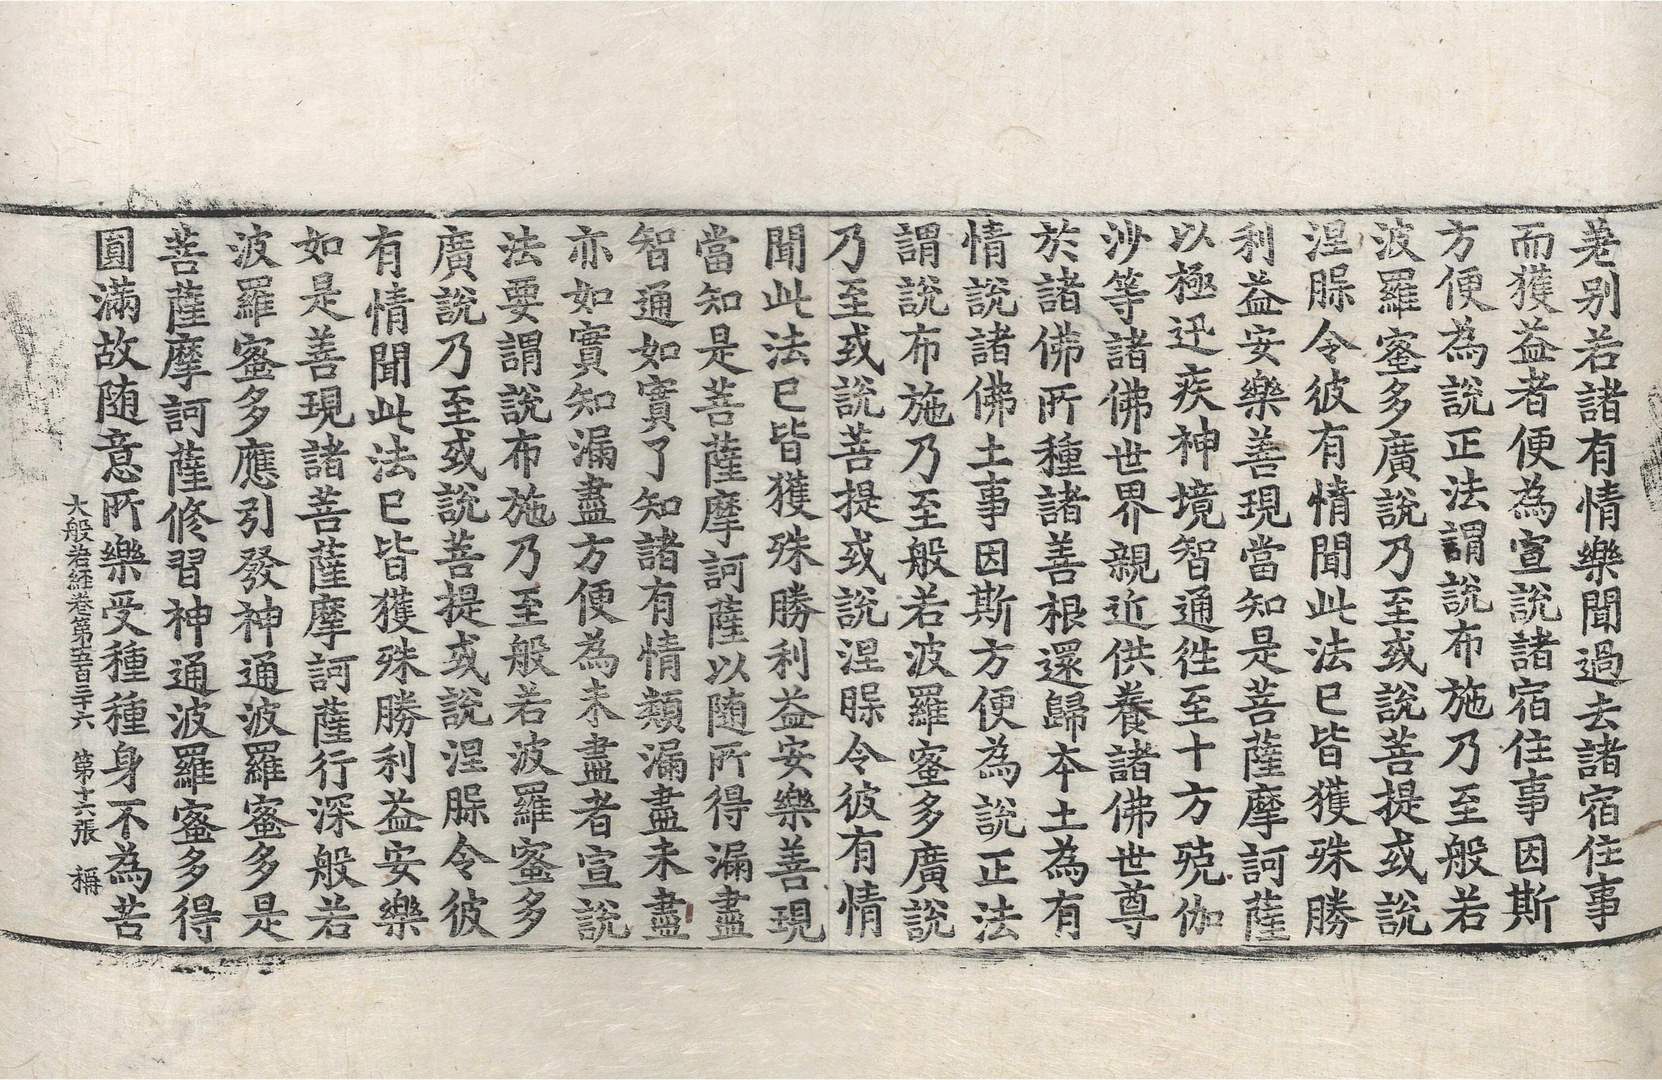 差别若諸有情樂聞過去諸宿住事
而獲益者便為宣說諸宿住事因斯
方便為說正法謂說布施乃至般若
波羅蜜多廣說乃至或說菩提或說
涅䏶令彼有情聞此法已皆獲殊勝
利益安樂善現當知是菩薩摩訶薩
以極迅疾神境智通徃至十方殑伽
沙等諸佛世界親近供養諸佛世尊
於諸佛所種諸善根還歸本土為有
情說諸佛土事因斯方便為說正法
謂說布施乃至般若波羅蜜多廣說
乃至或說菩提或說涅䏶令彼有情
聞此法已皆獲殊勝利益安樂善現
當知是菩薩摩訶薩以随所得漏盡
智通如實了知諸有情類漏盡未盡
亦如實知漏盡方便為未盡者宣說
法要謂說布施乃至般若波羅蜜多
廣說乃至或說菩提或說涅䏶令彼
有情聞此法已皆獲殊勝利益安樂
如是善現諸菩薩摩訶薩行深般若
波羅蜜多應引發神通波羅蜜多是
菩薩摩訶薩修習神通波羅蜜多得
圓滿故随意所樂受種種身不為苦
大般若經卷第五百二十六 第十六張 稱